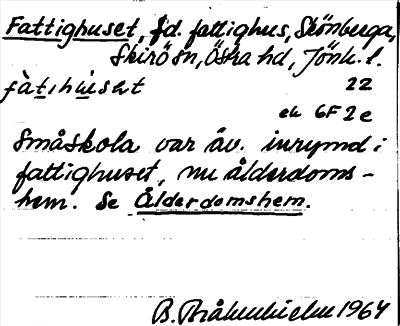 Fattighuset, f.d. fattighus, Skönberga,
Skirö sn, Östra hd, Jönk. l.
fàt̲ihú̲set 22
ek 6F2e
Småskola var äv. inrymd i
fattighuset, nu ålderdoms-
hem. Se Ålderdomshem.
B. 1964